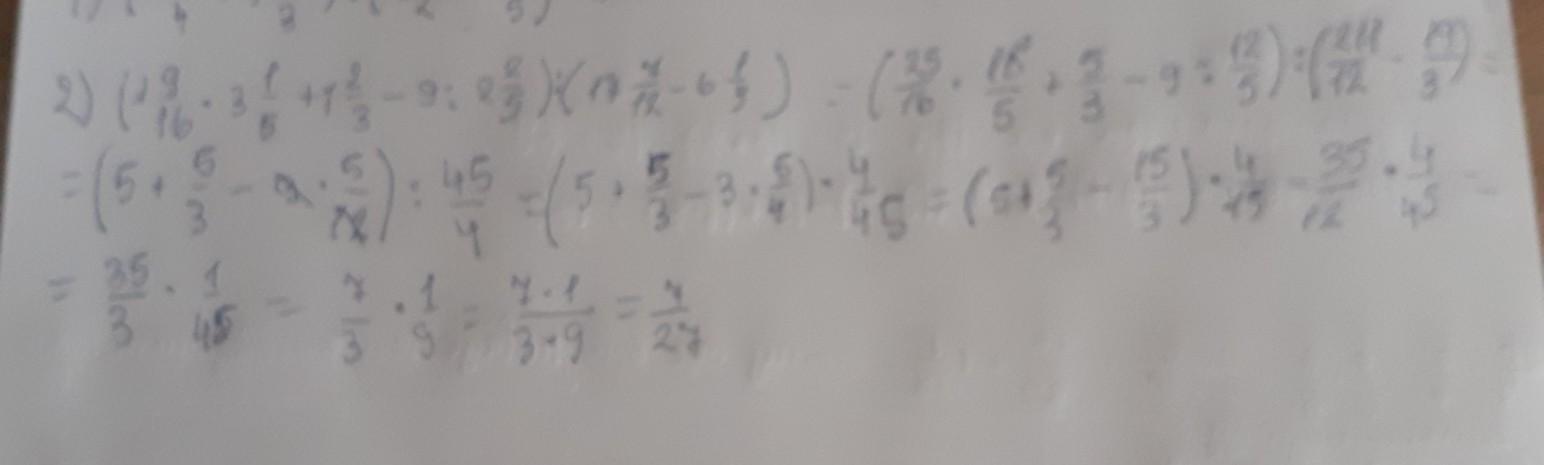 2) (1 9/16 · 3 1/5 + 1 2/3 - 9 : 2 2/5) : (17 7/12 - 6 1/3) = (25/16 · 16/5 + 5/3 - 9 : 12/5) : (211/12 - 19/3) =
= (5 + 5/3 - 9 · 5/12) : 45/4 = (5 + 5/3 - 3 · 5/4) · 4/45 = (5 + 5/3 - 15/3) · 4/45 = 35/12 · 4/45 =
= 35/3 · 1/45 = 7/3 · 1/9 = 7·1/3·9 = 7/27